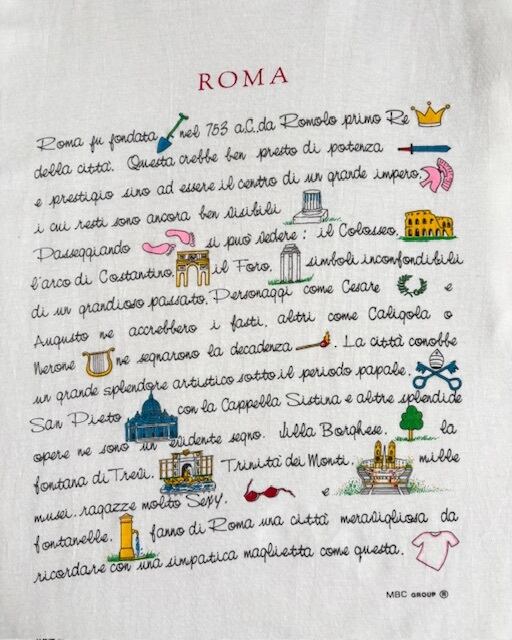 ROMA
Roma fu fondata nel 753 a.C. da Romolo primo Re
della città. Questa crebbe ben presto di potenza
e prestigio sino ad essere il centro di un grande impero,
i cui resti sono ancora ben visibili
Passeggiando si può vedere: il Colosseo,
l'arco di Costantino il Foro, simboli inconfondibili
di un grandioso passato. Personaggi come Cesare e
Augusto ne accrebbero i fasti, altri come Caligola o
Nerone ne segnarono la decadenza . La città conobbe
un grande splendore artistico sotto il periodo papale.
San Pieto con la Cappella Sistina e altre splendide
opere ne sono un evidente segno. Villa Borghese. la
fontana di Trevi. Trinità dei Monti. e mille
musei. ragazze molto Sexy.
fontanelle. fanno di Roma una città meravigliosa da
ricordare con una simpatica maglietta come questa.
MBC GROUP ®